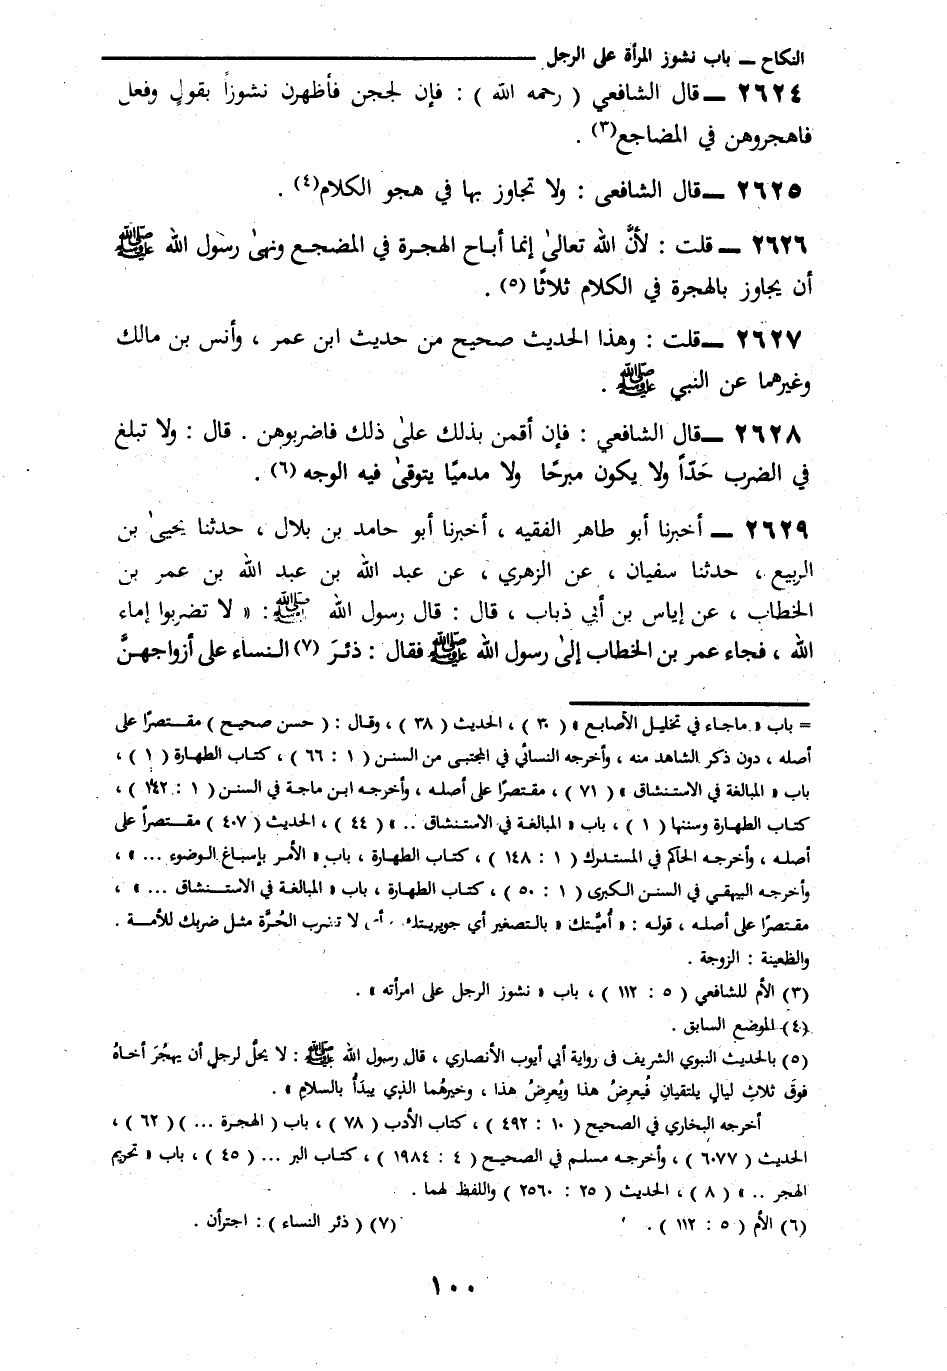 النكاح ــ باب نشوز المرأة على الرجل
٢٦٢٤ ــ قال الشافعي ( رحمه الله ) : فإن لججن فأظهرن نشوزاً بقولٍ وفعل
فاهجروهن في المضاجع(٣) .
٢٦٢٥ ــ قال الشافعى : ولا تجاوز بها في هجو الكلام(٤) .
٢٦٢٦ ــ قلت : لأنَّ الله تعالىٰ إنما أباح الهجرة في المضجع ونهىٰ رسول الله ﷺ
أن يجاوز بالهجرة في الكلام ثلاثًا (٥) .
٢٦٢٧ ــ قلت : وهذا الحديث صحيح من حديث ابن عمر ، وأنس بن مالك
وغيرهما عن النبي ﷺ .
٢٦٢٨ ــ قال الشافعي : فإن أقمن بذلك علىٰ ذلك فاضربوهن . قال : ولا تبلغ
في الضرب حَدّاً ولا يكون مبرحًا ولا مدميًا يتوقىٰ فيه الوجه (٦) .
٢٦٢٩ ــ أخبرنا أبو طاهر الفقيه ، أخبرنا أبو حامد بن بلال ، حدثنا يحيىٰ بن
الربيع ، حدثنا سفيان ، عن الزهري ، عن عبد الله بن عبد الله بن عمر بن
الخطاب ، عن إياس بن أبي ذباب ، قال : قال رسول الله ﷺ : « لا تضربوا إماء
الله ، فجاء عمر بن الخطاب إلىٰ رسول الله ﷺ فقال : ذئرَ (٧) النساء على أزواجهنَّ
= باب « ماجاء في تخليل الأصابع » ( ٣٠ ) ، الحديث ( ٣٨ ) ، وقال : ( حسن صحيح ) مقتصرًا على
أصله ، دون ذكر الشاهد منه ، وأخرجه النسائي في المجتبى من السنن ( ١ : ٦٦ ) ، كتاب الطهارة ( ١ ) ،
باب « المبالغة في الاستنشاق » ( ٧١ ) ، مقتصرًا على أصله ، وأخرجه ابن ماجة في السنن ( ١ : ١٤٢ ) ،
كتاب الطهارة وسننها ( ١ ) ، باب « المبالغة في الاستنشاق .. » ( ٤٤ ) ، الحديث ( ٤٠٧ ) مقتصراً على
أصله ، وأخرجه الحاكم في المستدرك ( ١ : ١٤٨ ) ، كتاب الطهارة ، باب « الأمر بإسباغ الوضوء ... » ،
وأخرجه البيهقي في السنن الكبرى ( ١ : ٥٠ ) ، كتاب الطهارة ، باب « المبالغة في الاستنشاق ... » ،
مقتصرًا على أصله ، قوله : « أُميَّتك » بالتصغير أي جويريتك لا تضرب الحُرَّة مثل ضربك للأمة .
والظعينة : الزوجة .
(٣) الأم للشافعي ( ٥ : ١١٢ ) ، باب « نشوز الرجل على امرأته » .
(٤) الموضع السابق .
(٥) بالحديث النبوي الشريف فى رواية أبي أيوب الأنصاري ، قال رسول الله ﷺ : لا يحلّ لرجل أن يهجُرَ أخاهُ
فوقَ ثلاثِ ليالٍ يلتقيانِ فُيعرِضُ هذا ويُعرِضُ هذا ، وخيرهُما الذي يبدَأُ بالسلامِ » .
أخرجه البخاري في الصحيح ( ١٠ : ٤٩٢ ) ، كتاب الأدب ( ٧٨ ) ، باب ( الهجرة ... ) ( ٦٢ ) ،
الحديث ( ٦٠٧٧ ) ، وأخرجه مسلم في الصحيح ( ٤ : ١٩٨٤ ) ، كتاب البر ... ( ٤٥ ) ، باب « تحريم
الهجر .. » ( ٨ ) ، الحديث ( ٢٥ : ٢٥٦٠ ) واللفظ لهما .
(٦) الأم ( ٥ : ١١٢ ) . (٧) ( ذئر النساء ) : اجترأن .
١٠٠